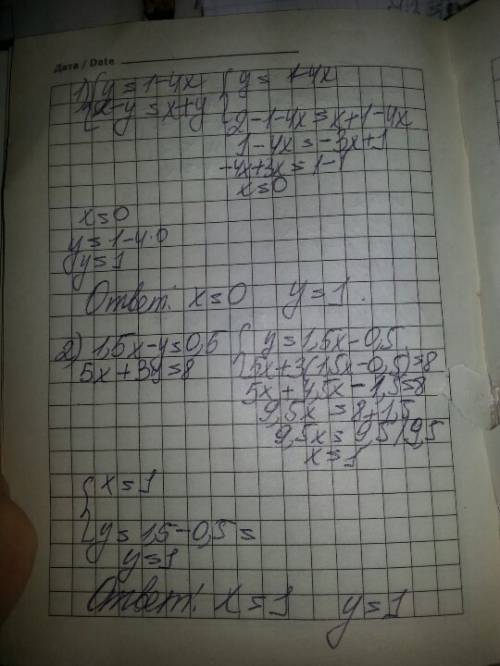 Дата / Date
1) { y = 1-4x { y = 1-4x
2-y = x+y
2-1-4x = x+1-4x
1-4x = -3x+1
-4x+3x = 1-1
x=0
x=0
y = 1-4·0
y=1
Ответ: x=0 y=1.
2) 1,5x-y=0,5 { y=1,5x-0,5
5x+3y=8 5x+3(1,5x-0,5)=8
5x+4,5x-1,5=8
9,5x = 8+1,5
9,5x = 9,5 / 9,5
x=1
{ x=1
y = 1,5-0,5 =
y=1
Ответ: x=1 y=1